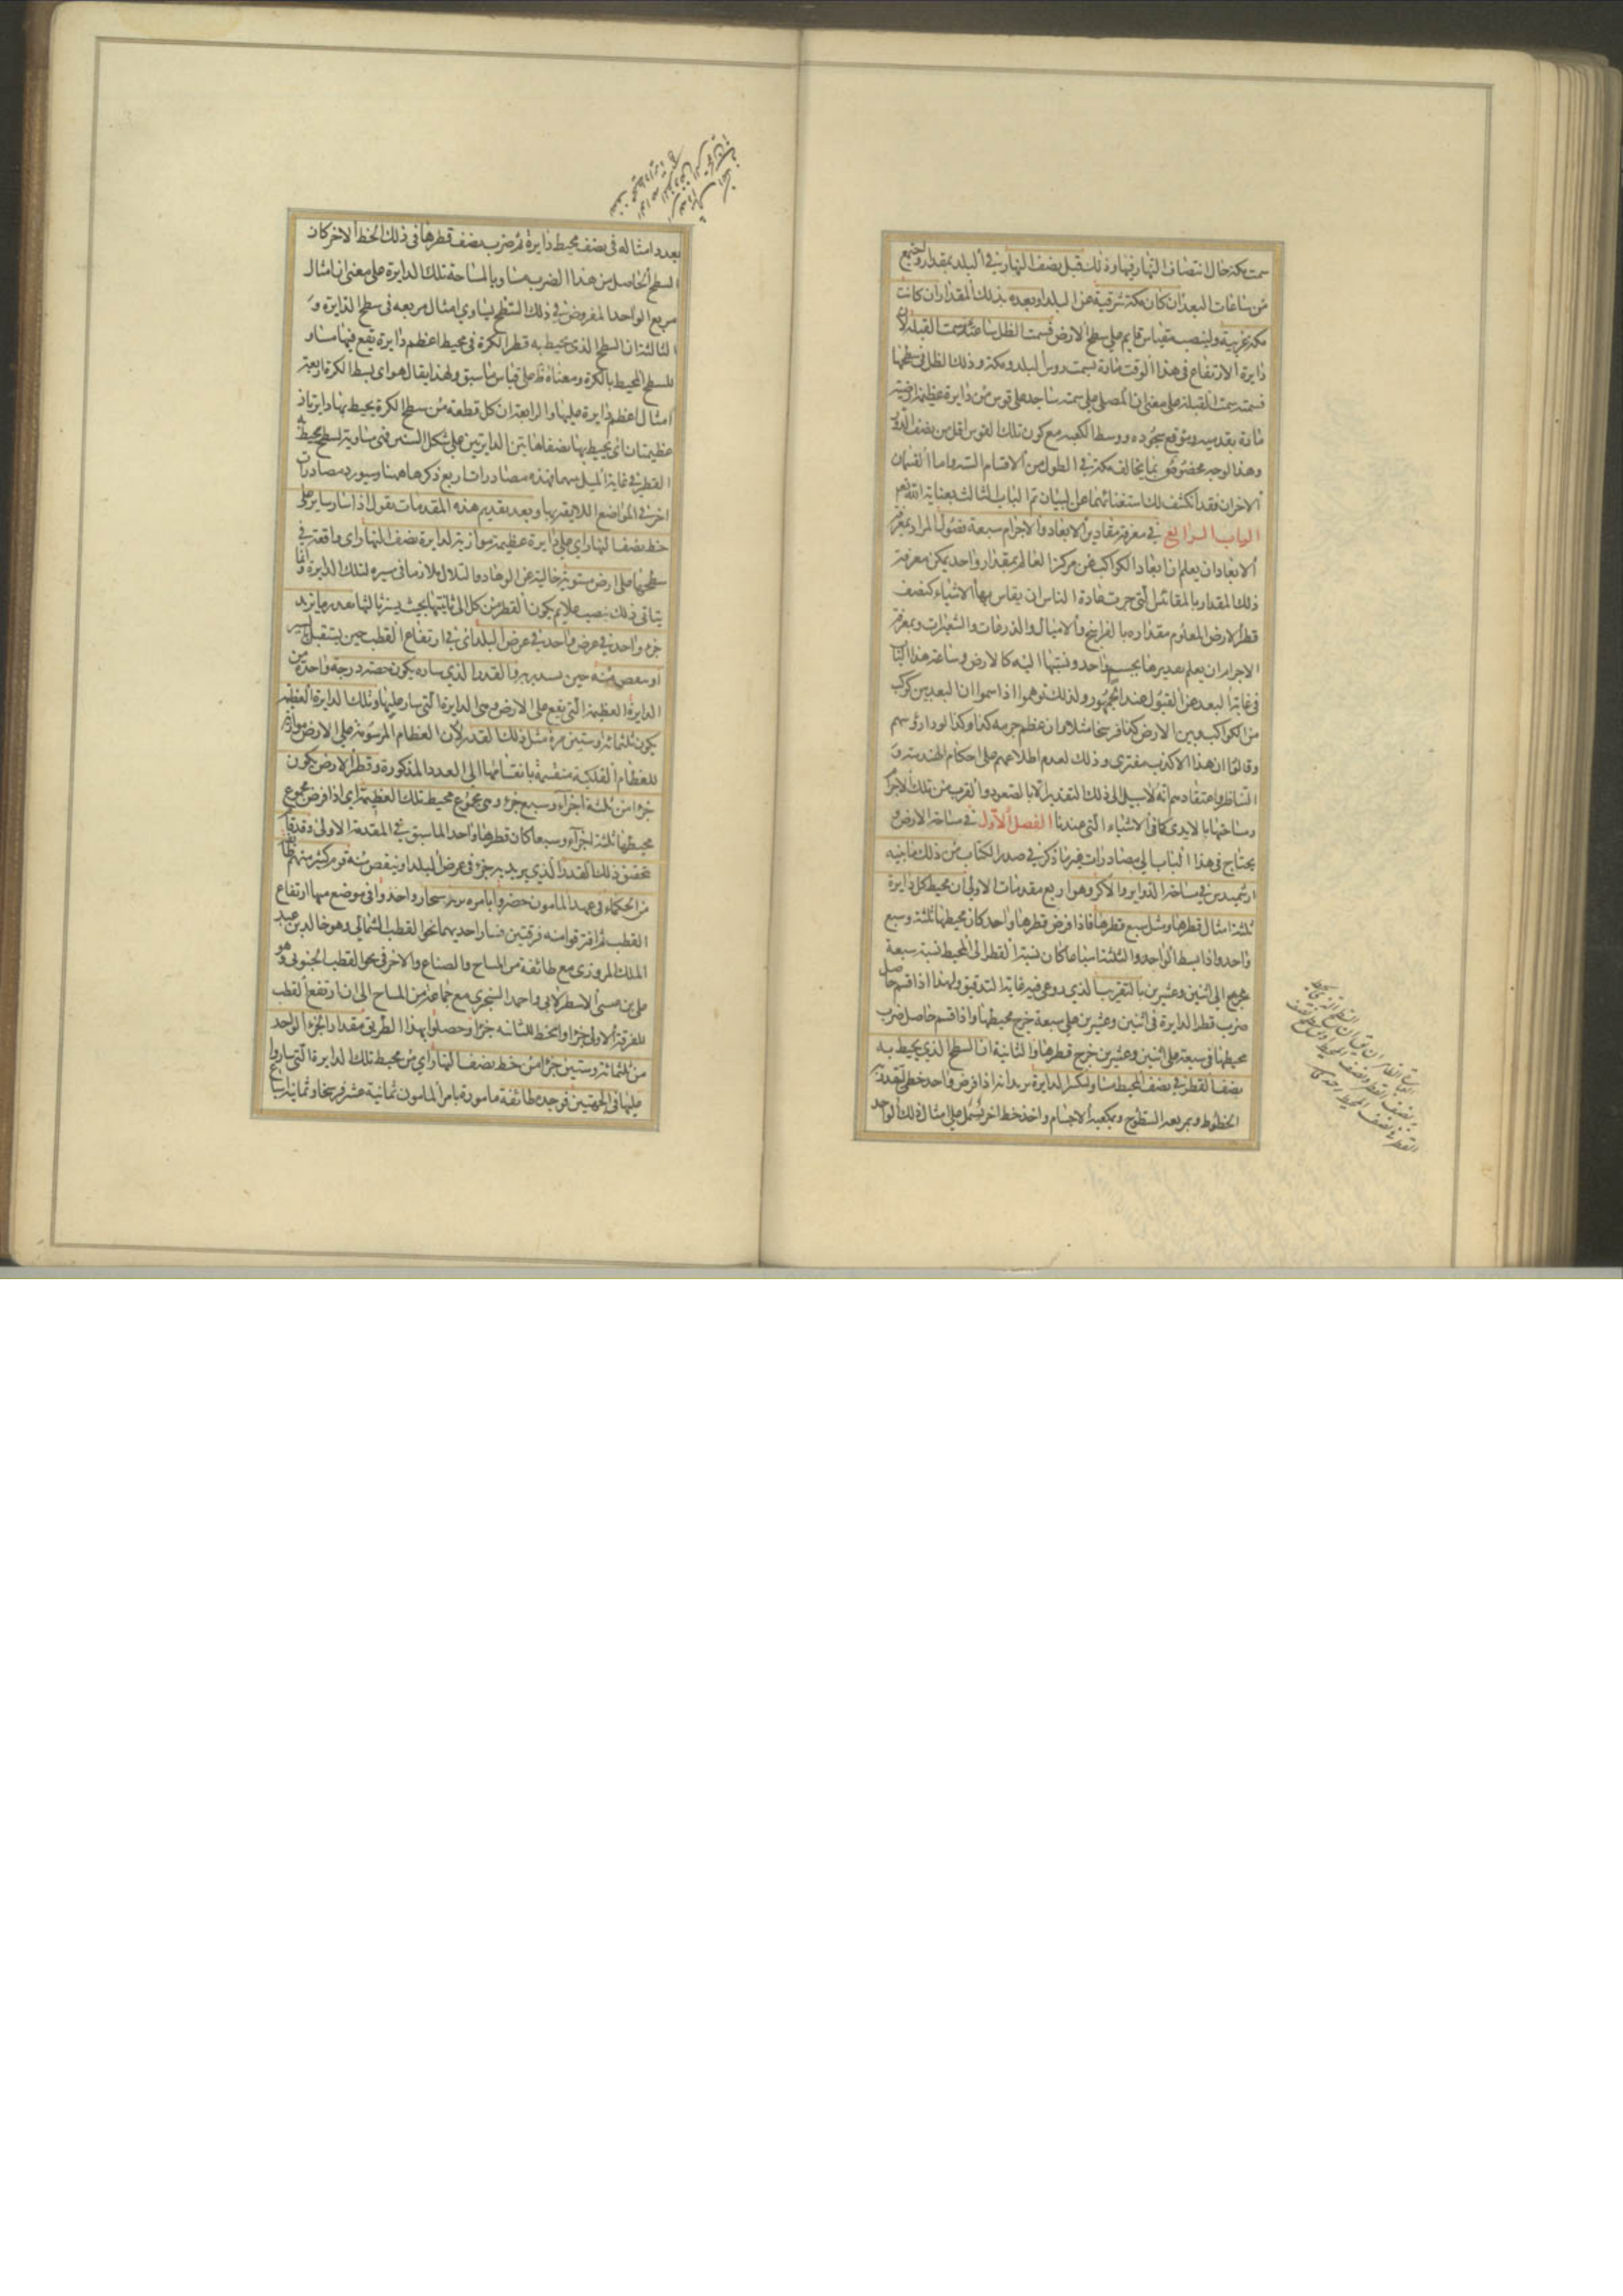 سمت مكة حال انتصاف النهار فيها وذلك قبل نصف النهار في البلد بمقدار
من ساعات البعد ان كان مكة شرقية عن البلد او بعده بذلك المقدار ان كانت
مكة غربية ولينصب مقياس قايم على سطح الارض فسمت الظل ساعتئذ سمت القبلة لان
دايرة الارتفاع في هذا الوقت مارة بسمت روس البلد ومكة وذلك الظل في سطحها
فسمته سمت القبلة على معنى ان المصلى على سمته ساجد على قوس من دايرة عظيمة ارضية
مارة بقدميه وموقع سجوده ووسط الكعبة مع كون تلك القوس اقل من نصف الدور
وهذا الوجه مخصوص بما يخالف مكة في الطول من الاقسام الستة واما القسمان
الاخران فقد انكشف لك استغنائهما عن البيان تم الباب الثالث بعناية الله تعالى
الباب الرابع في معرفة مقادير الابعاد والاجرام سبعة فصول المراد بمعرفة
الابعاد ان يعلم ان ابعاد الكواكب عن مركز العالم بمقدار واحد يمكن معرفة
ذلك المقدار بالمقائس التي جرت عادة الناس ان يقاس بها الاشياء كنصف
قطر الارض المعلوم مقداره بالفراسخ والاميال والذرعات والشعيرات وبمعرفة
الاجرام ان يعلم تقديرها بجسم واحد ونسبتها اليه كالارض وساعة هذا الباب
في غاية البعد عن القبول عند الجمهور ولذلك توهموا اذا سمعوا ان البعد بين كوكب
من الكواكب وبين الارض كذا فرسخا مثلا وان عظم جرمه كذا وكذا لووا رؤسهم
وقالوا ان هذا الا كذب مفترى وذلك لعدم اطلاعهم على احكام الهندسة و
المناظر واعتقادهم انه لا سبيل الى ذلك التقدير الا بالصعود والقرب من تلك الاجرام
ومساحتها بالايدي كما في الاشياء التي عندنا الفصل الاول في مساحة الارض و
يحتاج في هذا الباب الى مصادرات غير ما ذكر في صدر الكتاب من ذلك ما بينه
ارشميدس في مساحة الدواير والاكر وهو اربع مقدمات الاولى ان محيط كل دايرة
ثلثة امثال قطرها ومثل سبع قطرها فاذا فرض قطرها واحد كان محيطها ثلثة وسبع
واحد واذا بسط الواحد والثلثة اسباعا كان نسبة القطر الى المحيط نسبة سبعة
الى اثنين وعشرين بالتقريب الذي روعى فيه غاية التدقيق ولهذا اذا قسم حاصل
ضرب قطر الدايرة في اثنين وعشرين على سبعة خرج محيطها واذا قسم حاصل ضرب
محيطها في سبعة على اثنين وعشرين خرج قطرها والثانية ان السطح الذي يحيط به
نصف القطر في نصف المحيط مساو لكل الدايرة يريد انه اذا فرض واحد خطى لتقدير
الخطوط وبمربعه السطوح وبمكعبه الاجسام واخذ خط اخر يشمل على امثال ذلك الواحد
بعدد امثاله في نصف محيط دايرة ثم ضرب نصف قطرها في ذلك الخط الاخر كان
السطح الحاصل من هذا الضرب مساويا لمساحة تلك الدايرة على معنى ان امثال
مربع الواحد المفروض في ذلك السطح يساوى امثال مربعه في سطح الدايرة و
الثالثة ان السطح الذي يحيط به قطر الكرة في محيط اعظم دايرة تقع فيها مساو
للسطح المحيط بالكرة ومعناه على قياس ما سبق ولهذا يقال هو اى بسط الكرة اربعة
امثال اعظم دايرة عليها والرابعة ان كل قطعة من سطح الكرة يحيط بها دايرتان
عظيمتان اى يحيط بها نصفا هاتين الدايرتين على شكل السنس فهى مساوية لسطح يحيط به
القطر في غاية الميل بينهما فهذه مصادرات اربع ذكرها ههنا وسيورد مصادرات
اخر في المواضع اللايقة بها وبعد تقديم هذه المقدمات نقول اذا سار ساير على
خط نصف النهار اى على دايرة عظيمة موازية لدايرة نصف النهار اى واقعة في
سطحها على ارض مستوية خالية عن الوهاد والتلال ملازما في سيره لتلك الدايرة وانما
يتاتى ذلك بنصب علايم يكون القطر من كل الى ثانيتها بحيث يستر ثالثها بقدر ما يزيد
جزء واحد في عرض واحد في عرض البلد اى في ارتفاع القطب حين يستقبل
او ينقص منه حين يستدبره فالقدر الذي ساره يكون حصة درجة واحدة من
الدايرة العظيمة التي يقع على الارض وهى الدايرة التي سار عليها وتلك الدايرة العظيمة
يكون ثلثمائة وستين مرة مثل ذلك القدر لان العظام المرسومة على الارض موازية
للعظام الفلكية منقسمة بانقسامها الى العدد المذكورة وقطر الارض يكون
جزا من ثلثة اجزاء وسبع جزء وهى مجموع محيط تلك العظيمة اى اذا فرض مجموع
محيطها ثلثة اجزاء وسبعا كان قطرها واحدا لما سبق في المقدمة الاولى وقد
تحقق ذلك القدر الذي يزيد به جزء في عرض البلد او ينقص منه قوم كثير منهم
من الحكماء في عهد المامون حضروا بامره برية سنجار واخذوا في موضع منها ارتفاع
القطب ثم افترقوا منه فرقتين فسار احديهما نحو القطب الشمالى وهو خالد بن عبد
الملك المروزى مع طائفة من المساح والصناع والاخرى نحو القطب الجنوبى وهو
على بن عيسى الاسطرلابى واحمد السنجرى مع جماعة من المساح الى ان ارتفع القطب
للفرقة الاولى جزا وانحط للثانية جزا وحصلوا بهذا الطريق مقدار الجزء الواحد
من ثلثمائة وستين جزا من خط نصف النهار اى من محيط تلك الدايرة التي ساروا
عليها في الجهتين فوجده طائفة مامورة بامر المامون ثمانية عشر فرسخا وثمانية اسباع